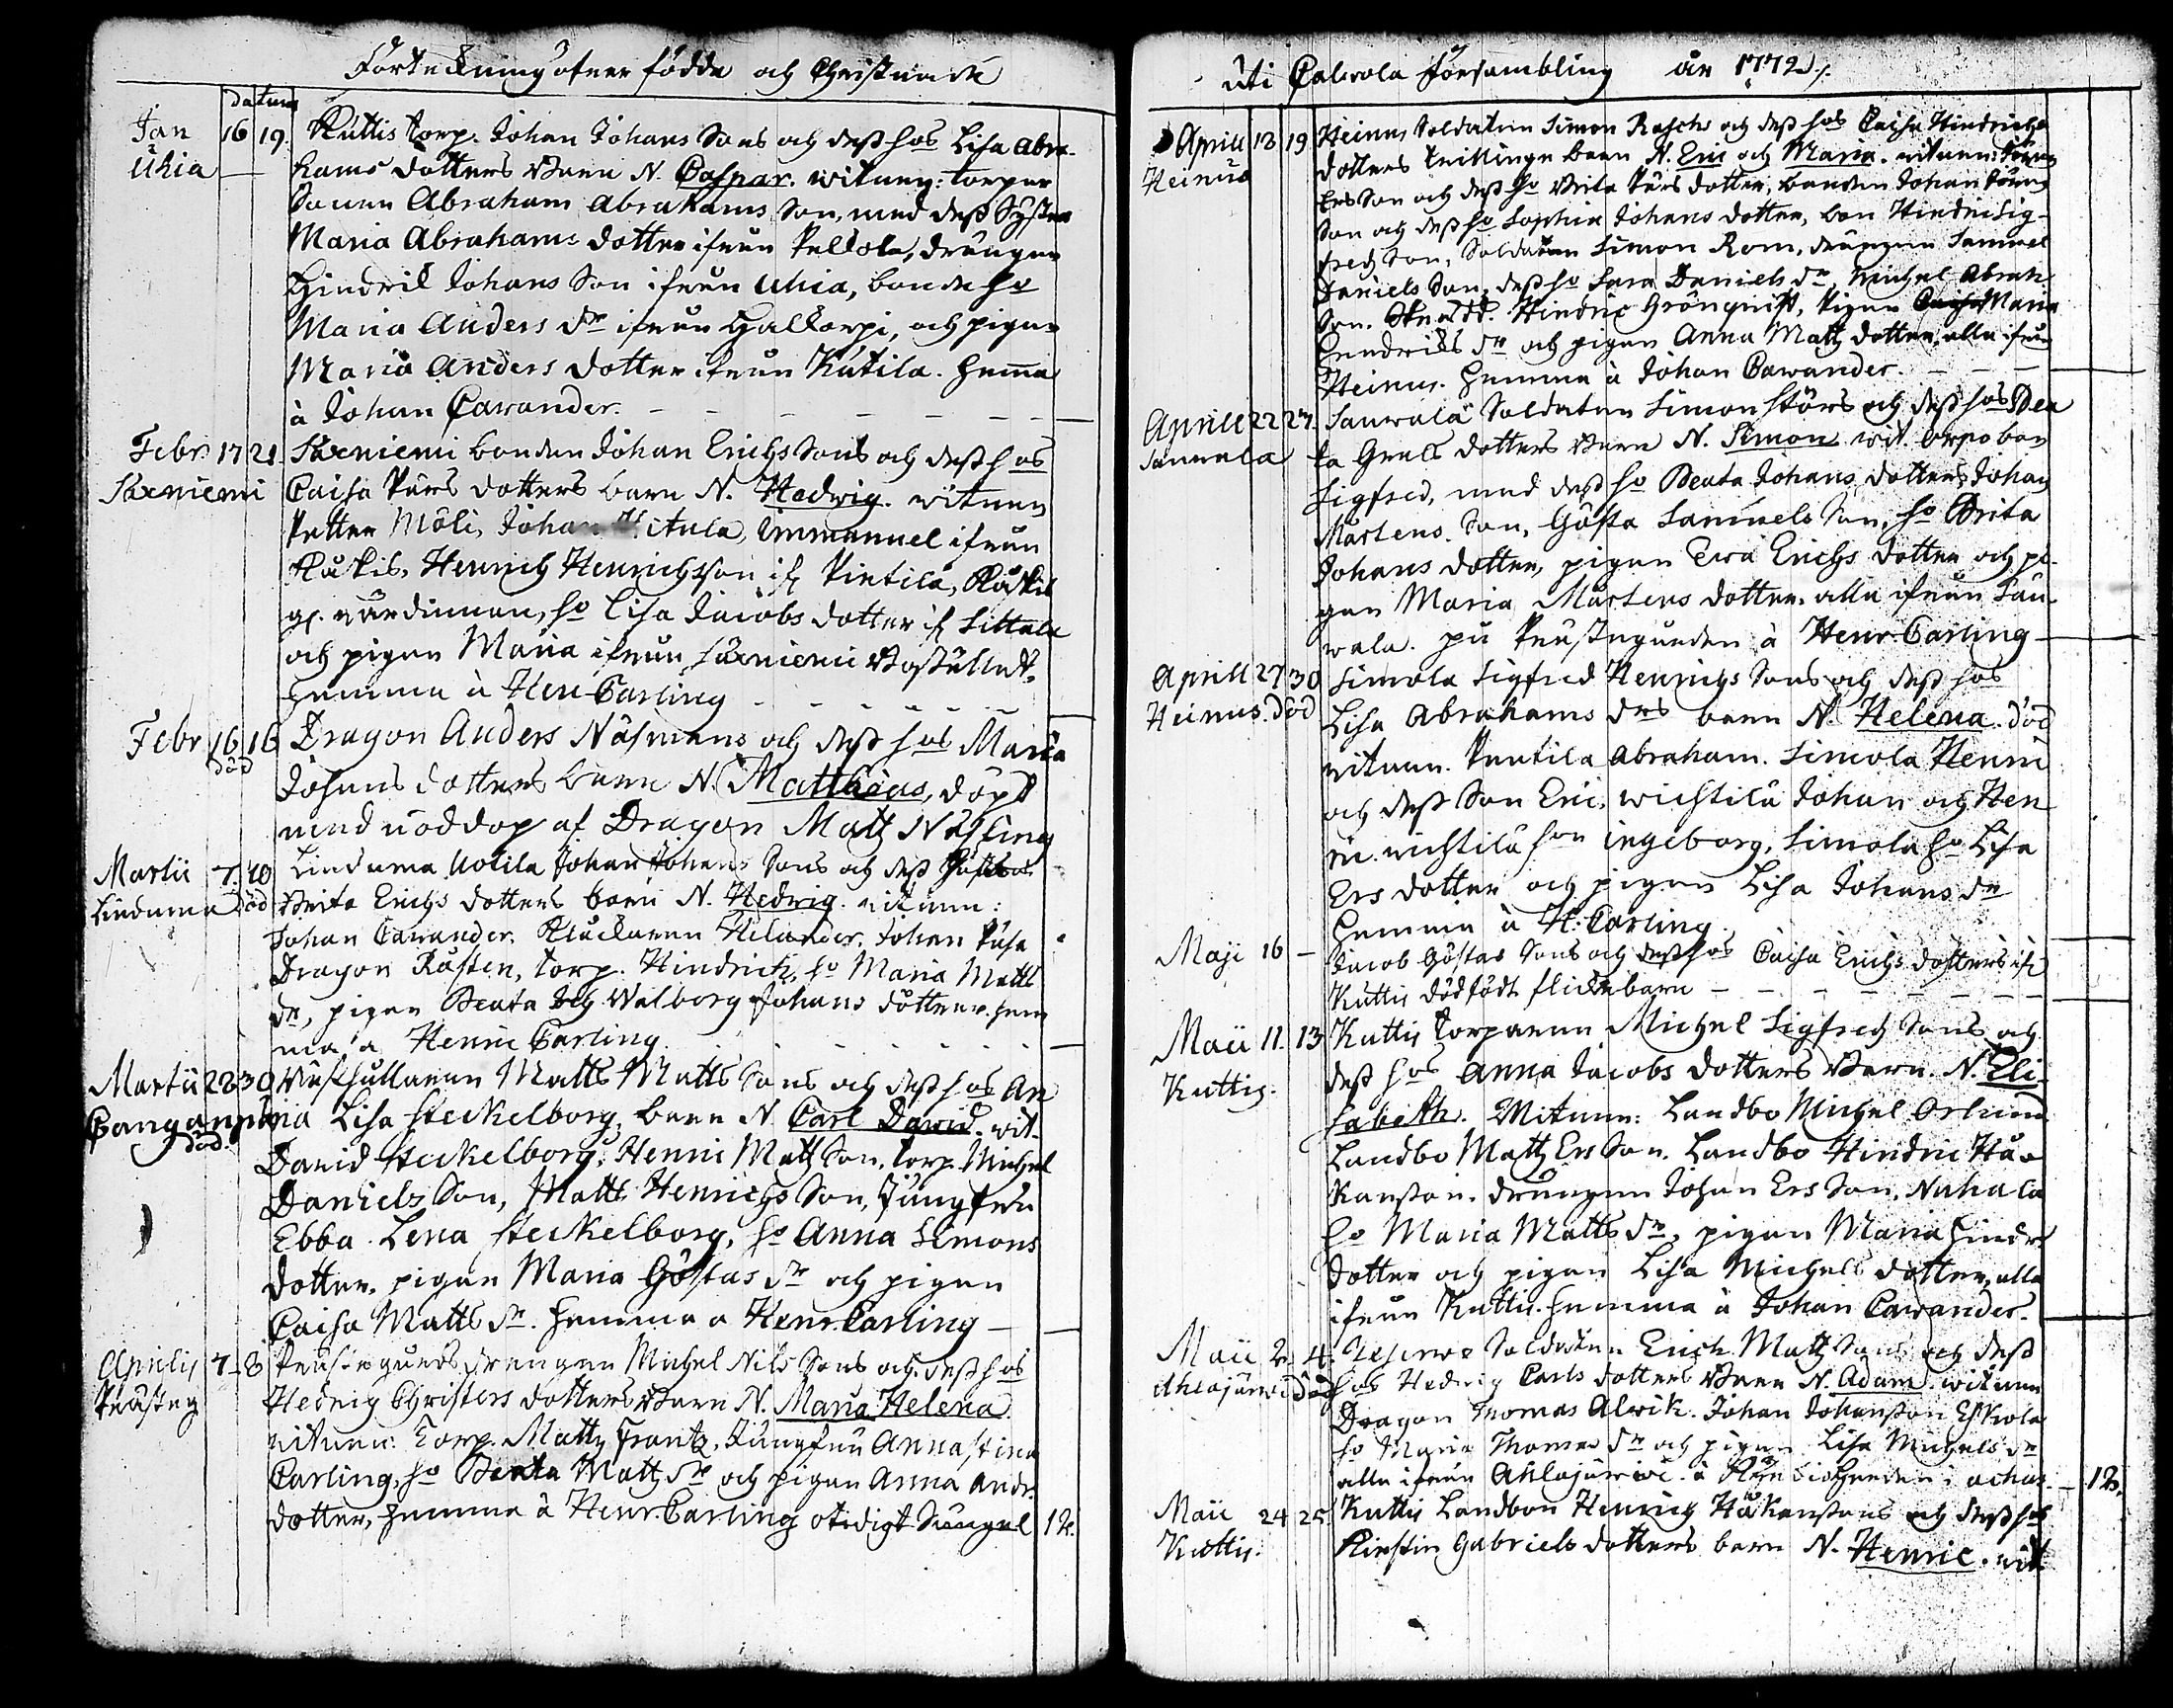 Förteckning öfver födde och Christnade
datum
Jan 16 19 Kuttis torp. Johan Johans Sons och dess hos Lisa Abra-
Uhia hams dotters Barn N. Caspar. witnen: torpar
Sonen Abraham Abrahams Son, med dess Syster
Maria Abrahams dotter ifrån Peltola, drängen
Hindrik Johans Son ifrån Uhia, bonde ho
Maria Anders dr ifrån Halkorpi, och pigan
Maria Anders dotter ifrån Kutila. hemma
à Johan Cawander.
Febr 17 21 Saxniemi bonden Johan Erichs Sons och dess hos
Saxniemi Caisa Pärs dotters barn N. Hedwig. witnen
Petter Möli, Johan Immanuel ifrån
Henrich Henrichson if Pietilä,
wärdinnan, ho Lisa Jacobs dotter if Sittala
och pigan Maria ifrån Saxniemi Boställe.
hemma à Henr Carling
Febr 16 16 Dragon Anders Näsmans och dess hos Maria
död Johans dotters barn N. Matthias, döpt
med nöddop af Dragon Matz Näsling
Martii 7. 10 Lindema Uotila Johan Johans Sons och dess
Lindema död Brita Erichs dotters barn N. Hedwig. witnen:
Johan Cawander. Klockaren Helander. Johan
Dragon Kasten, torp. Hindrich, ho Maria Matts
dr, pigan Beata och Walborg Johans dötter. hem
ma à Henric Carling.
Martii 22 30 Matts Matts Sons och dess hos An
Canganpä na Lisa Steckelborg, barn N. Carl David. wit.
död. David Steckelborg. Henric Matz Son, torp. Michel
Daniels Son, Matts Henrichs Son, Jungfru
Ebba Lena Steckelborg, ho Anna Simons
dotter, pigan Maria Göstas dr och pigan
Caisa Matts dr. hemma a Henr. Carling
Aprilis 7 8 Prästegårds drengen Michel Nils Sons och dess hos
Prästeg Hedvig Christers dotters Barn N. Maria Helena.
witnen: Torp. Matts Frantz, Jungfru Anna Stina
Carling, ho Beata Matz dr och pigan Anna Andr.
dotter, hemma à Henr. Carling otidigt 12.
uti Calvola försambling år 1772.
Aprill 18 19 Heinus Soldaten Simon Raschs och dess hos Caisa Hindrichs
Heinus dotters twillinge barn N. Eric och Maria. witnen:
Ers Son och dess ho Brita Pärs dotter, bonden Johan
Son och dess ho Sophia Johans dotter, bon Hindric Sig-
freds Son, Soldaten Simon Rom, drängen Samuel
Daniels Son, dess ho Sara Daniels dr, Michel Abrah
Son. Hindric Grönqvist, pigan Maria
Hendrichs dr och pigan Anna Matz dotter, alla ifrån
Heinus. hemma à Johan Cawander.
Aprill 22 27. Sauwala Soldaten Simon Störs och dess hos Bea
Sauwala ta Grels dotters Barn N. Simon wit. bon
Sigfred, med dess ho Beata Johans dotter, Johan
Mårtens Son, Gösta Samuels Son, ho Brita
Johans dotter, pigan Ewa Erichs dotter och pi-
gan Maria Mårtens dotter. alla ifrån Sau-
wala. på Prästegården à Henr Carling
Aprill 27 30 Simola Sigfred Henrichs Sons och dess hos
Heinus. död Lisa Abrahams drs barn N. Helena. död
witnen. Pentila Abraham. Simola Henric
och dess Son Eric, wichtilä Johan och Hen
ric. wichtilä hon Ingeborg, Simola ho Lisa
Ers dotter och pigan Lisa Johans dr
hemma à H: Carling
Maji 16 – Jacob Göstas Sons och dess hos Caisa Erichs dotters if
Kuttis dödfödt flickebarn
Maii 11. 13 Kuttis torparen Michel Sigfreds Sons och
Kuttis. dess hos Anna Jacobs dotters Barn. N. Eli-
sabeth. Witnen: Landbo Michel Oslund
Landbo Matz Ers Son. Landbo Hindric Hå-
kanson. drängen Johan Ers Son, Nahala
ho Maria Matts dr, pigan Maria Hindr
dotter och pigan Lisa Michels dotter, alla
ifrån Kuttis. hemma à Johan Cawander.
Maii 2 4. Soldaten Erich Matz Sons och dess
Ahlajärwi död hos Hedvig Carls dotters Barn N. Adam. witnen
Dragon Thomas Alwik. Johan Johanson Eskola
ho Maria Thomas dr och pigan Lisa Michels dr
alla ifrån Ahlajärwi. à 12.
Maii 24 25. Kuttis Landbon Henrich Håkansons och dess hos
Kuttis. Kirstin Gabriels dotters barn N. Henric. wit